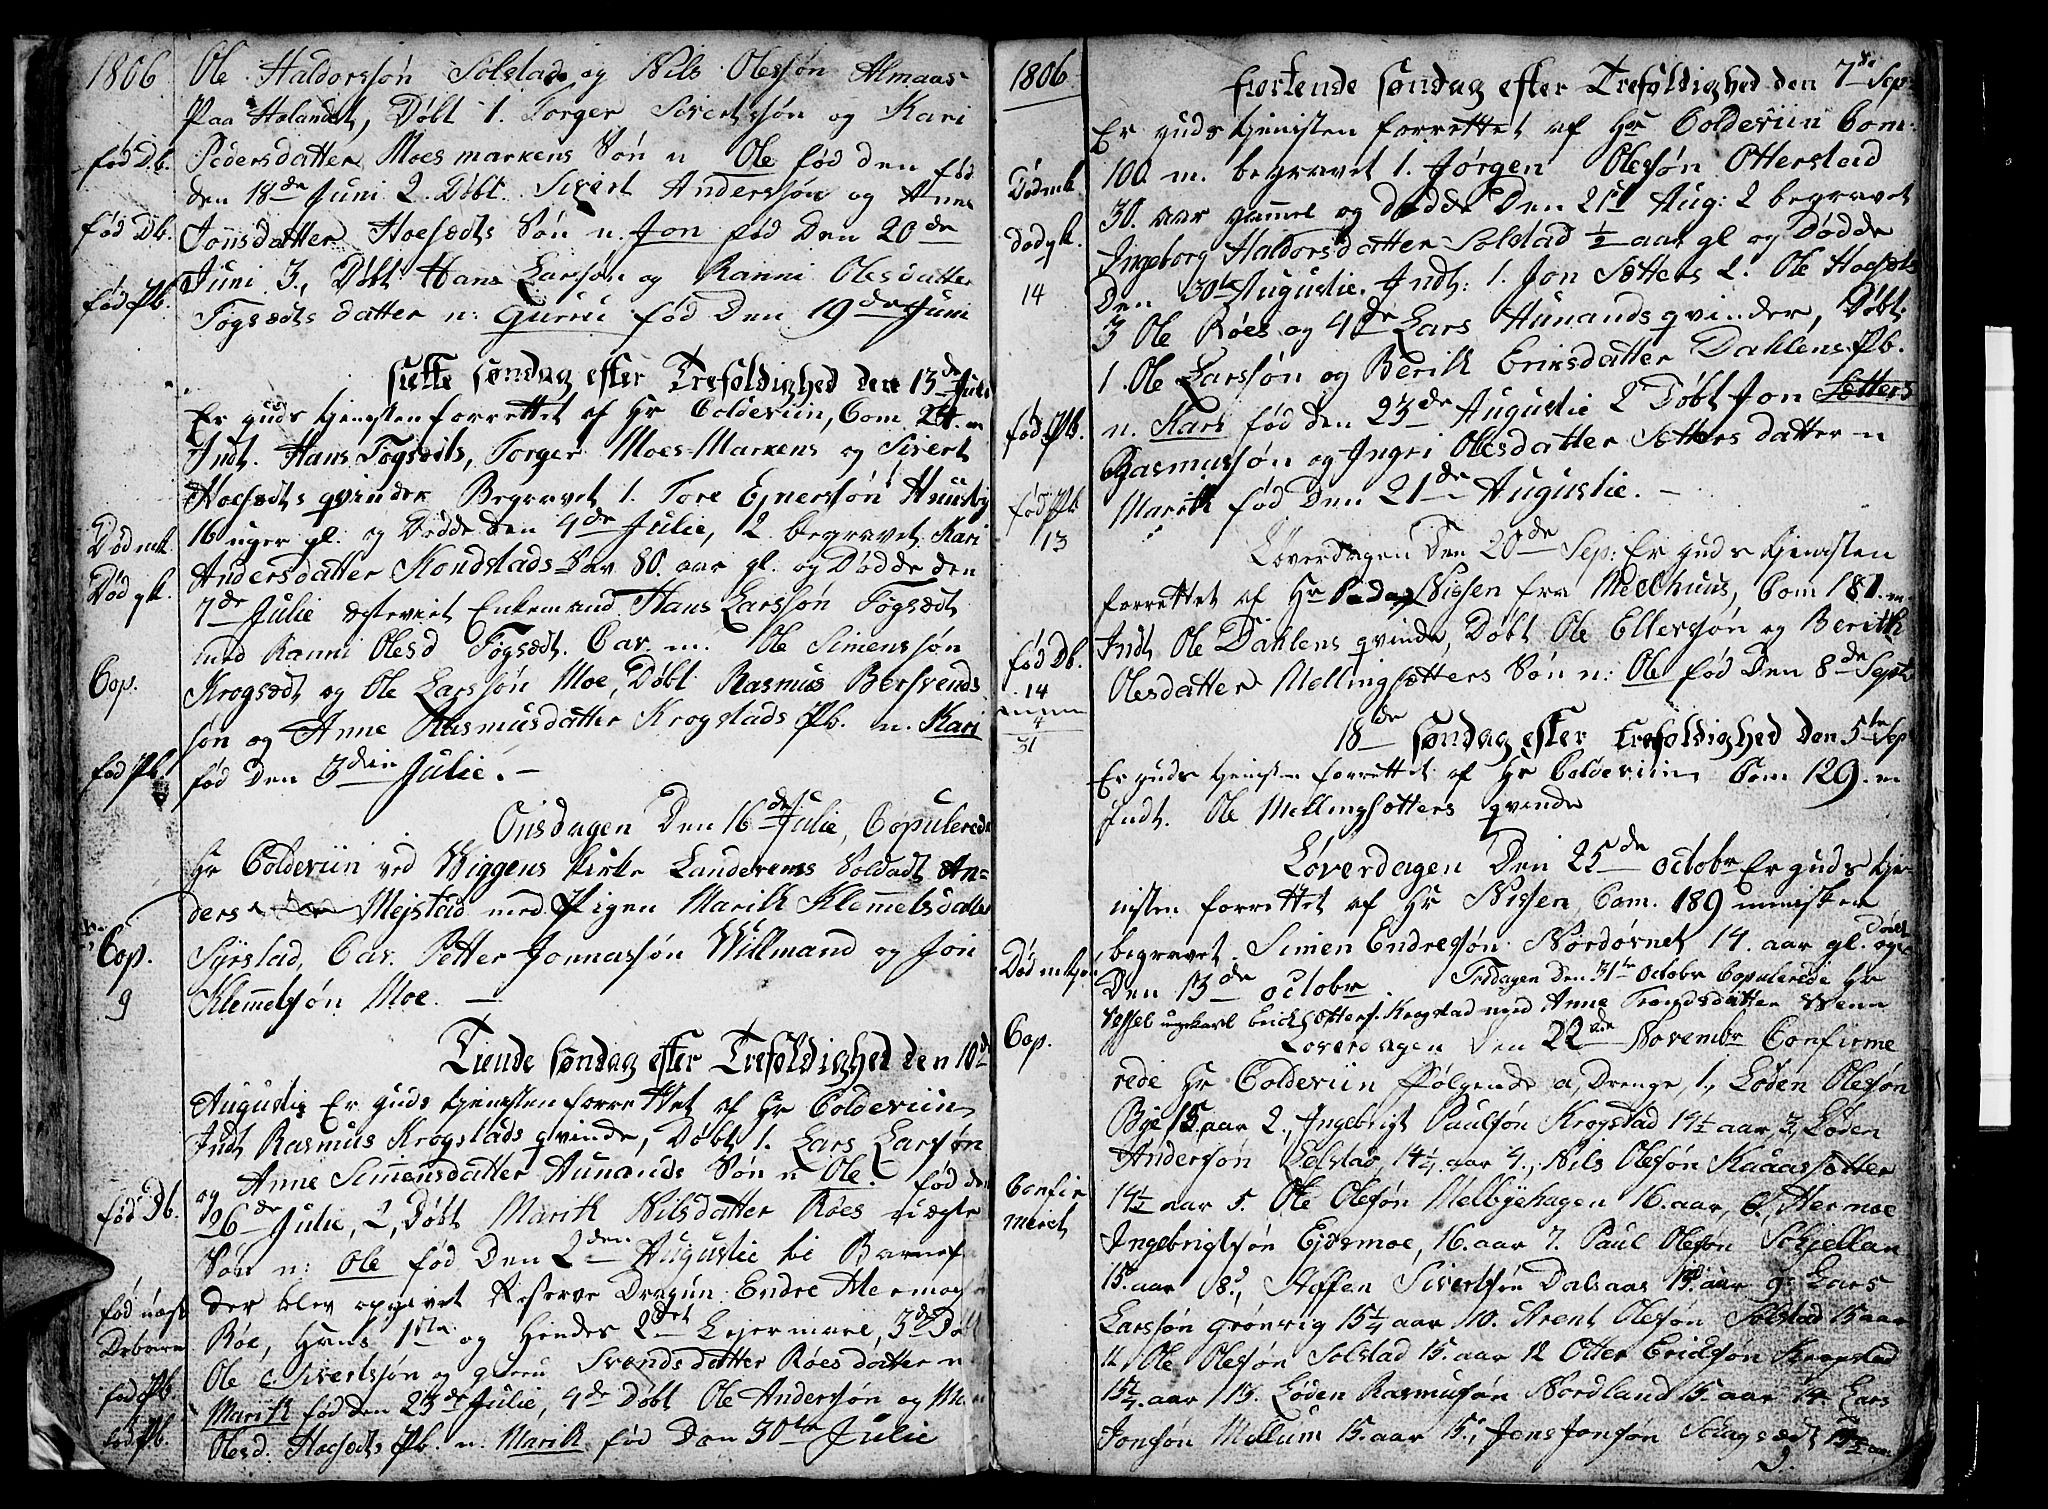 1806
Ole Haldorssøn Solstad og Nils Olessøn Almaas
Paa Hølandet, Døbt 1. Torger Sivertssøn og Kari
fød Db.
Pedersdatter Moesmarkens Søn n Ole fød den fød
den 18de Juni 2. Døbt Sivert Anderssøn og Anne
fød Db.
Jonsdatter Hoesedts Søn n. Jon fød Den 20de
Juni 3, Døbt Hans Larssøn og Ranni Olesdatter
fød Pb.
Fogsedts datter n: Gurru fød Den 19de Juni
siette søndag efter Trefoldighed den 13de Juli
Er guds tjenesten forrettet af Hr Colderiin, Com 24. m
Indt. Hans Fogsedts, Torger Moes-Markens og Sivert
Hoesedts qvinder Begravet 1. Tore Ejnerssøn Huusby
Død mk.
16 uger gl. og Dødde den 4de Julie, 2 begravet Kari
Død qk.
Andersdatter Kondstads 80. aar gl. og Dødde den
7de Julie egteviet Enkemand Hans Larssøn Fogsedt
med Ranni Olesd Fogsedt. Cav. m. Ole Simenssøn
Cop.
Krogsedt og Ole Larssøn Moe, Døbt Rasmus Bersvends
søn og Anne Rasmusdatter Krogstads Pb. n. Kari
fød Pb.
fød Den 3die Julie. -
Onsdagen Den 16de Julie, Copulerede
Hr Colderiin ved Wiggens kirke Landeverns Soldadt An=
ders Mejstad med Pigen Marith Klemmetsdatter
Cop.
Syrstad, Cav. Petter Jonnassøn Willmand og Jon
9
Klemmetsøn Moe. -
Tiende søndag efter Trefoldighed den 10de
Augustie Er guds tjenesten forrettet af Hr Colderiin
Indt Rasmus Krogstads qvinde, Døbt 1. Lars Larsøn
og Anne Simensdatter Hunands Søn n Ole. fød den
fød Db.
26de Julie, 2, Døbt Marith Nilsdatter Røes uægte
Søn n: Ole fød Den 2den Augustie til Barnefa
fød uægt
der blev opgivet Reserve Dragun Endre Hermogs
Drbarn
Røe, Hans 1ste og Hendes 2det Lejermaal, 3de Døbt
Ole Sivertssøn og Gurru Svendsdatter Røes datter n
fød Pb
Marith fød den 23de Julie, 4de Døbt Ole Anderssøn og
fød Pb.
Olesd. Hoesedts Pb. n. Marith fød Den 30te Julie
1806
fiortende søndag efter Trefoldighed den 7de Sep
Er guds tjenesten forrettet af Hr Colderiin Com:
100. m. begravet 1. Jørgen Olessøn Otterstad
Død mk.
30. aar gammel og dødde Den 21de Aug: 2 begravet
død qk.
Ingeborg Haldorsdatter Solstad ½ aar gl og Dødde
14
Den 30te Augustie. Indt: 1. Jon Sætters 2. Ole Hoesets
3 Ole Røes og 4de Lars Hunands qvinder, Døbt
1. Ole Larssøn og Berith Eriksdatter Dahlens Pb.
fød Pb.
n. Kari fød den 23de Augustie 2 Døbt Jon Sætters
Rasmussøn og Ingri Olesdatter Sætters datter n
fød Pb
13
Marith fød Den 21de Augustie. -
Løverdagen Den 20de Sep: Er guds tjenesten
forrettet af Hr Nissen fra Meelhuus, Com 181. m.
Indt Ole Dahlens qvinde, Døbt Ole Ellevsøn og Berith
fød Db.
Olesdatter Mellingsætters Søn n: Ole fød Den 8de Septr
14
4
31
18de søndag efter Trefoldighed den 5te Sep
Er guds tjenesten forrettet af Hr Colderiin Com 129. m
Indt. Ole Mellingsætters qvinde
Løverdagen Den 25de octobr Er guds tje
nisten forrettet af Hr Nissen Com. 189 mennisker
begravet. Simen Endresøn Nordøvnet 14. aar gl. og Døde
Død mkøn
Den 13de octobr. Fredagen Den 31te Octobr Copulerede Hr
Vessel ungkarl Erich Otters. Krogstad med Anne Trondsdatter Wenn
Cop.
Løverdagen Den 22de Novembr Confirme
rede Hr Colderiin Følgende a, Drenge, 1., Loden Olesøn
Bye 15, aar 2., Ingebrigt Paulsøn Krogstad 14½ aar, 3, Loden
Andersøn Solstad, 14¼. aar 4., Nils Olesøn Kaaassætter
Confir
meret
14½ aar 5. Ole Olesøn Melbyehagen 16. aar, 6., Hermoe
Ingebrigtsøn Ejdsmoe, 16. aar 7. Paul Olesøn Sohjellan
15. aar 8., Steffen Sivertsøn Dalsaas 15. aar 9. Lars
Larssøn Grønvig 15¼ aar 10. Arent Olesøn Solstad 15 aar
11, Ole Olesøn Solstad 15. aar 12 Otter Erichsøn Krogstad
15¼. aar 13. Loden Rasmusøn Nordland 15. aar 14. Lars
Jonsøn Mellum 15. aar 15., Jens Jonsøn Skagsædt 15½ aar